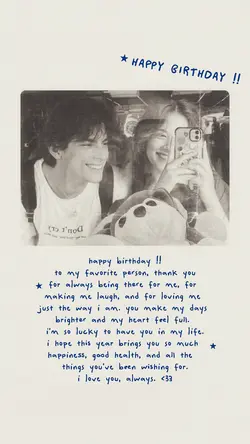 ★ HAPPY BIRTHDAY !!
happy birthday !!
to my favorite person, thank you
for always being there for me, for
making me laugh, and for loving me
just the way i am. you make my days
brighter and my heart feel full.
i'm so lucky to have you in my life.
i hope this year brings you so much
happiness, good health, and all the
things you've been wishing for.
i love you, always. <33